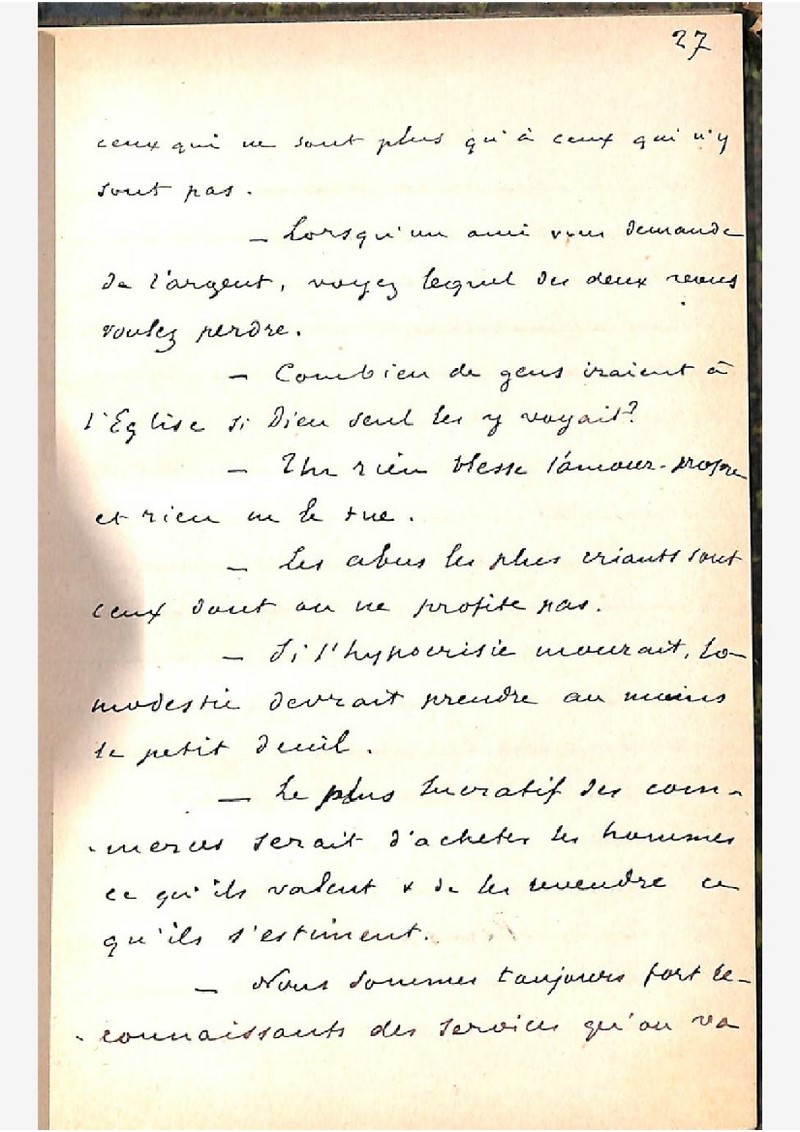 27
ceux qui ne sont plus qu'à ceux qui n'y
sont pas.
— Lorsqu'un ami vous demande
de l'argent, voyez lequel des deux vous
voulez perdre.
— Combien de gens iraient à
l'Eglise si Dieu seul les y voyait?
— Un rien blesse l'amour-propre
et rien ne le tue.
— Les abus les plus criants sont
ceux dont on ne profite pas.
— Si l'hypocrisie mourait, la
modestie devrait prendre au moins
le petit deuil.
— Le plus lucratif des com-
-merces serait d'acheter les hommes
ce qu'ils valent & de les revendre ce
qu'ils s'estiment.
— Nous sommes toujours fort re-
-connaissants des services qu'on va